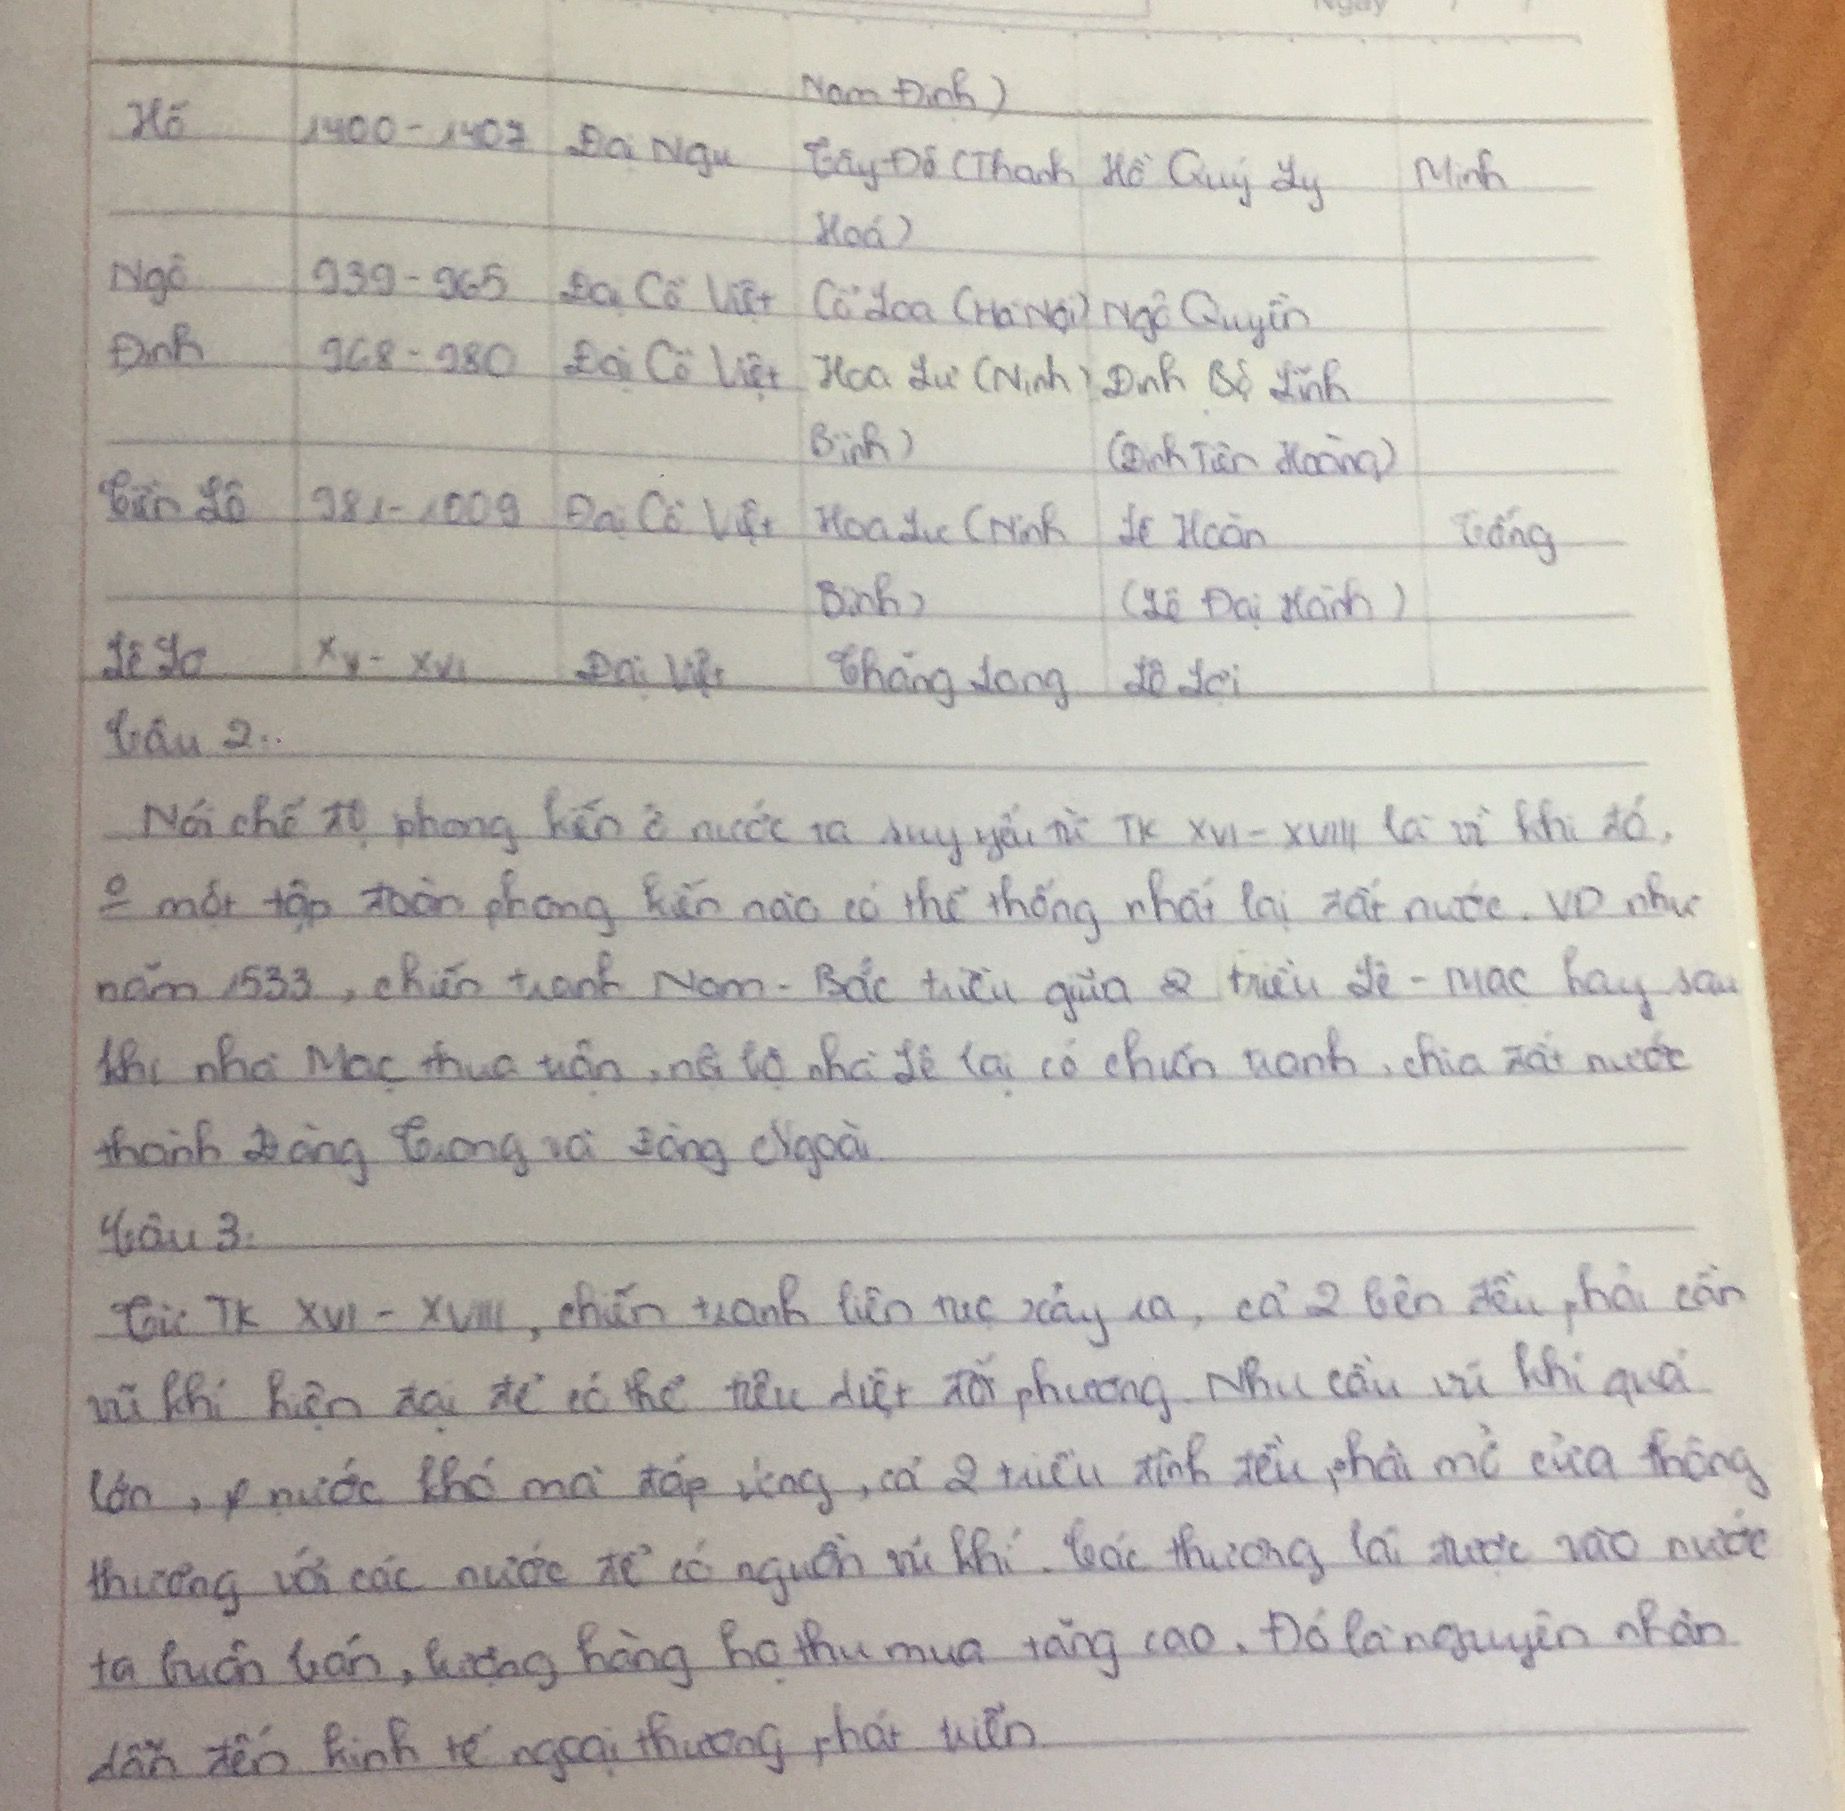 Ngày / /
Nam Định)
Hồ 1400 - 1407 Đại Ngu Tây Đô (Thanh Hồ Quý Ly Minh
Hoá)
Ngô 939 - 965 Đại Cồ Việt Cổ Loa (Hà Nội) Ngô Quyền
Đinh 968 - 980 Đại Cồ Việt Hoa Lư (Ninh Đinh Bộ Lĩnh
Bình) (Đinh Tiên Hoàng)
Tiền Lê 981 - 1009 Đại Cồ Việt Hoa Lư (Ninh Lê Hoàn Tống
Bình) (Lê Đại Hành)
Lê Sơ XV - XVI Đại Việt Thăng Long Lê Lợi
Câu 2:
Nói chế độ phong kiến ở nước ta suy yếu từ TK XVI - XVIII là vì khi đó,
một tập đoàn phong kiến nào có thể thống nhất lại đất nước. VD như
năm 1533, chiến tranh Nam - Bắc triều giữa 2 triều Lê - Mạc hay sau
khi nhà Mạc thua trận, nội bộ nhà Lê lại có chiến tranh, chia đất nước
thành Đàng Trong và Đàng Ngoài.
Câu 3:
Từ TK XVI - XVIII, chiến tranh liên tục xảy ra, cả 2 bên đều phải cần
vũ khí hiện đại để có thể tiêu diệt đối phương. Nhu cầu vũ khí quá
lớn, nước khó mà đáp ứng, cả 2 triều đình đều phải mở cửa thông
thương với các nước để có nguồn vũ khí. Các thương lái được vào nước
ta buôn bán, lượng hàng họ thu mua tăng cao. Đó là nguyên nhân
dẫn đến kinh tế ngoại thương phát triển